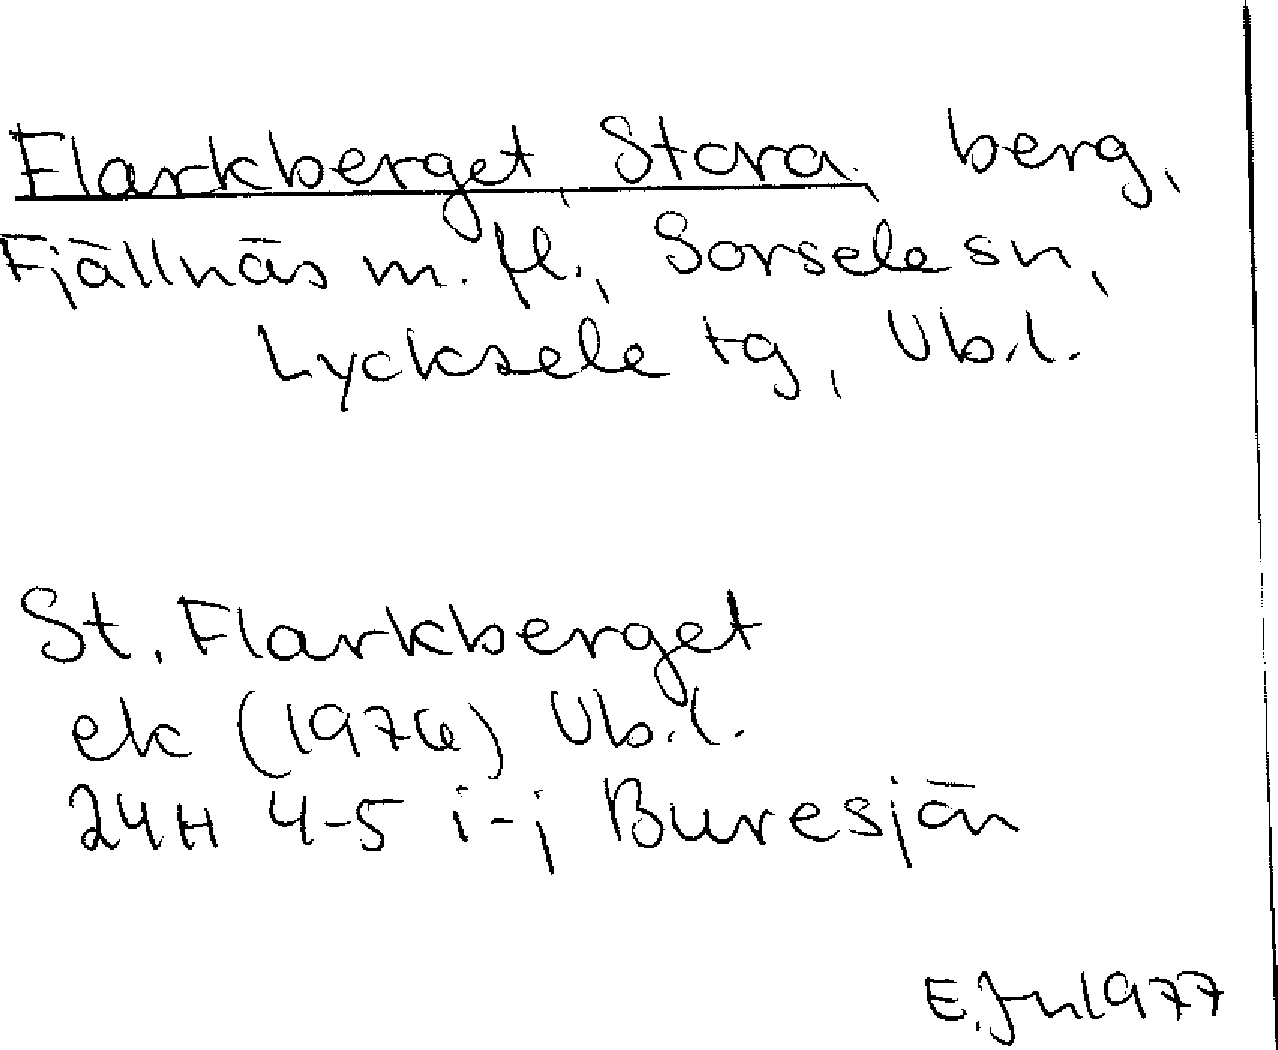 Flarkberget, Stora, berg,
Fjällnäs m. fl., Sorsele sn,
Lycksele tg, Vb.l.
St. Flarkberget
ek (1976) Vb.l.
24H 4-5 i-j Buresjön
E. Jn 1977